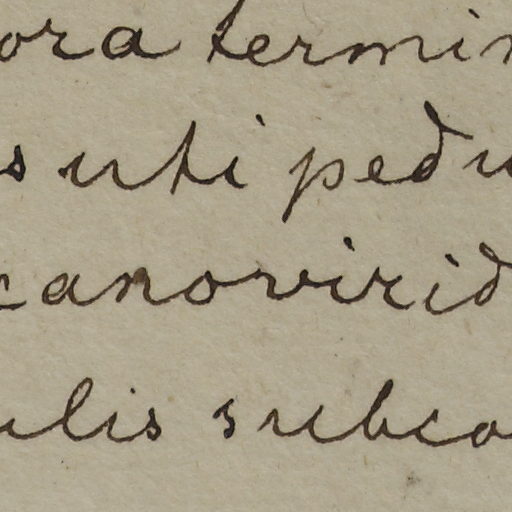 ora termin
s uti pedu
canovirid
ulis subco